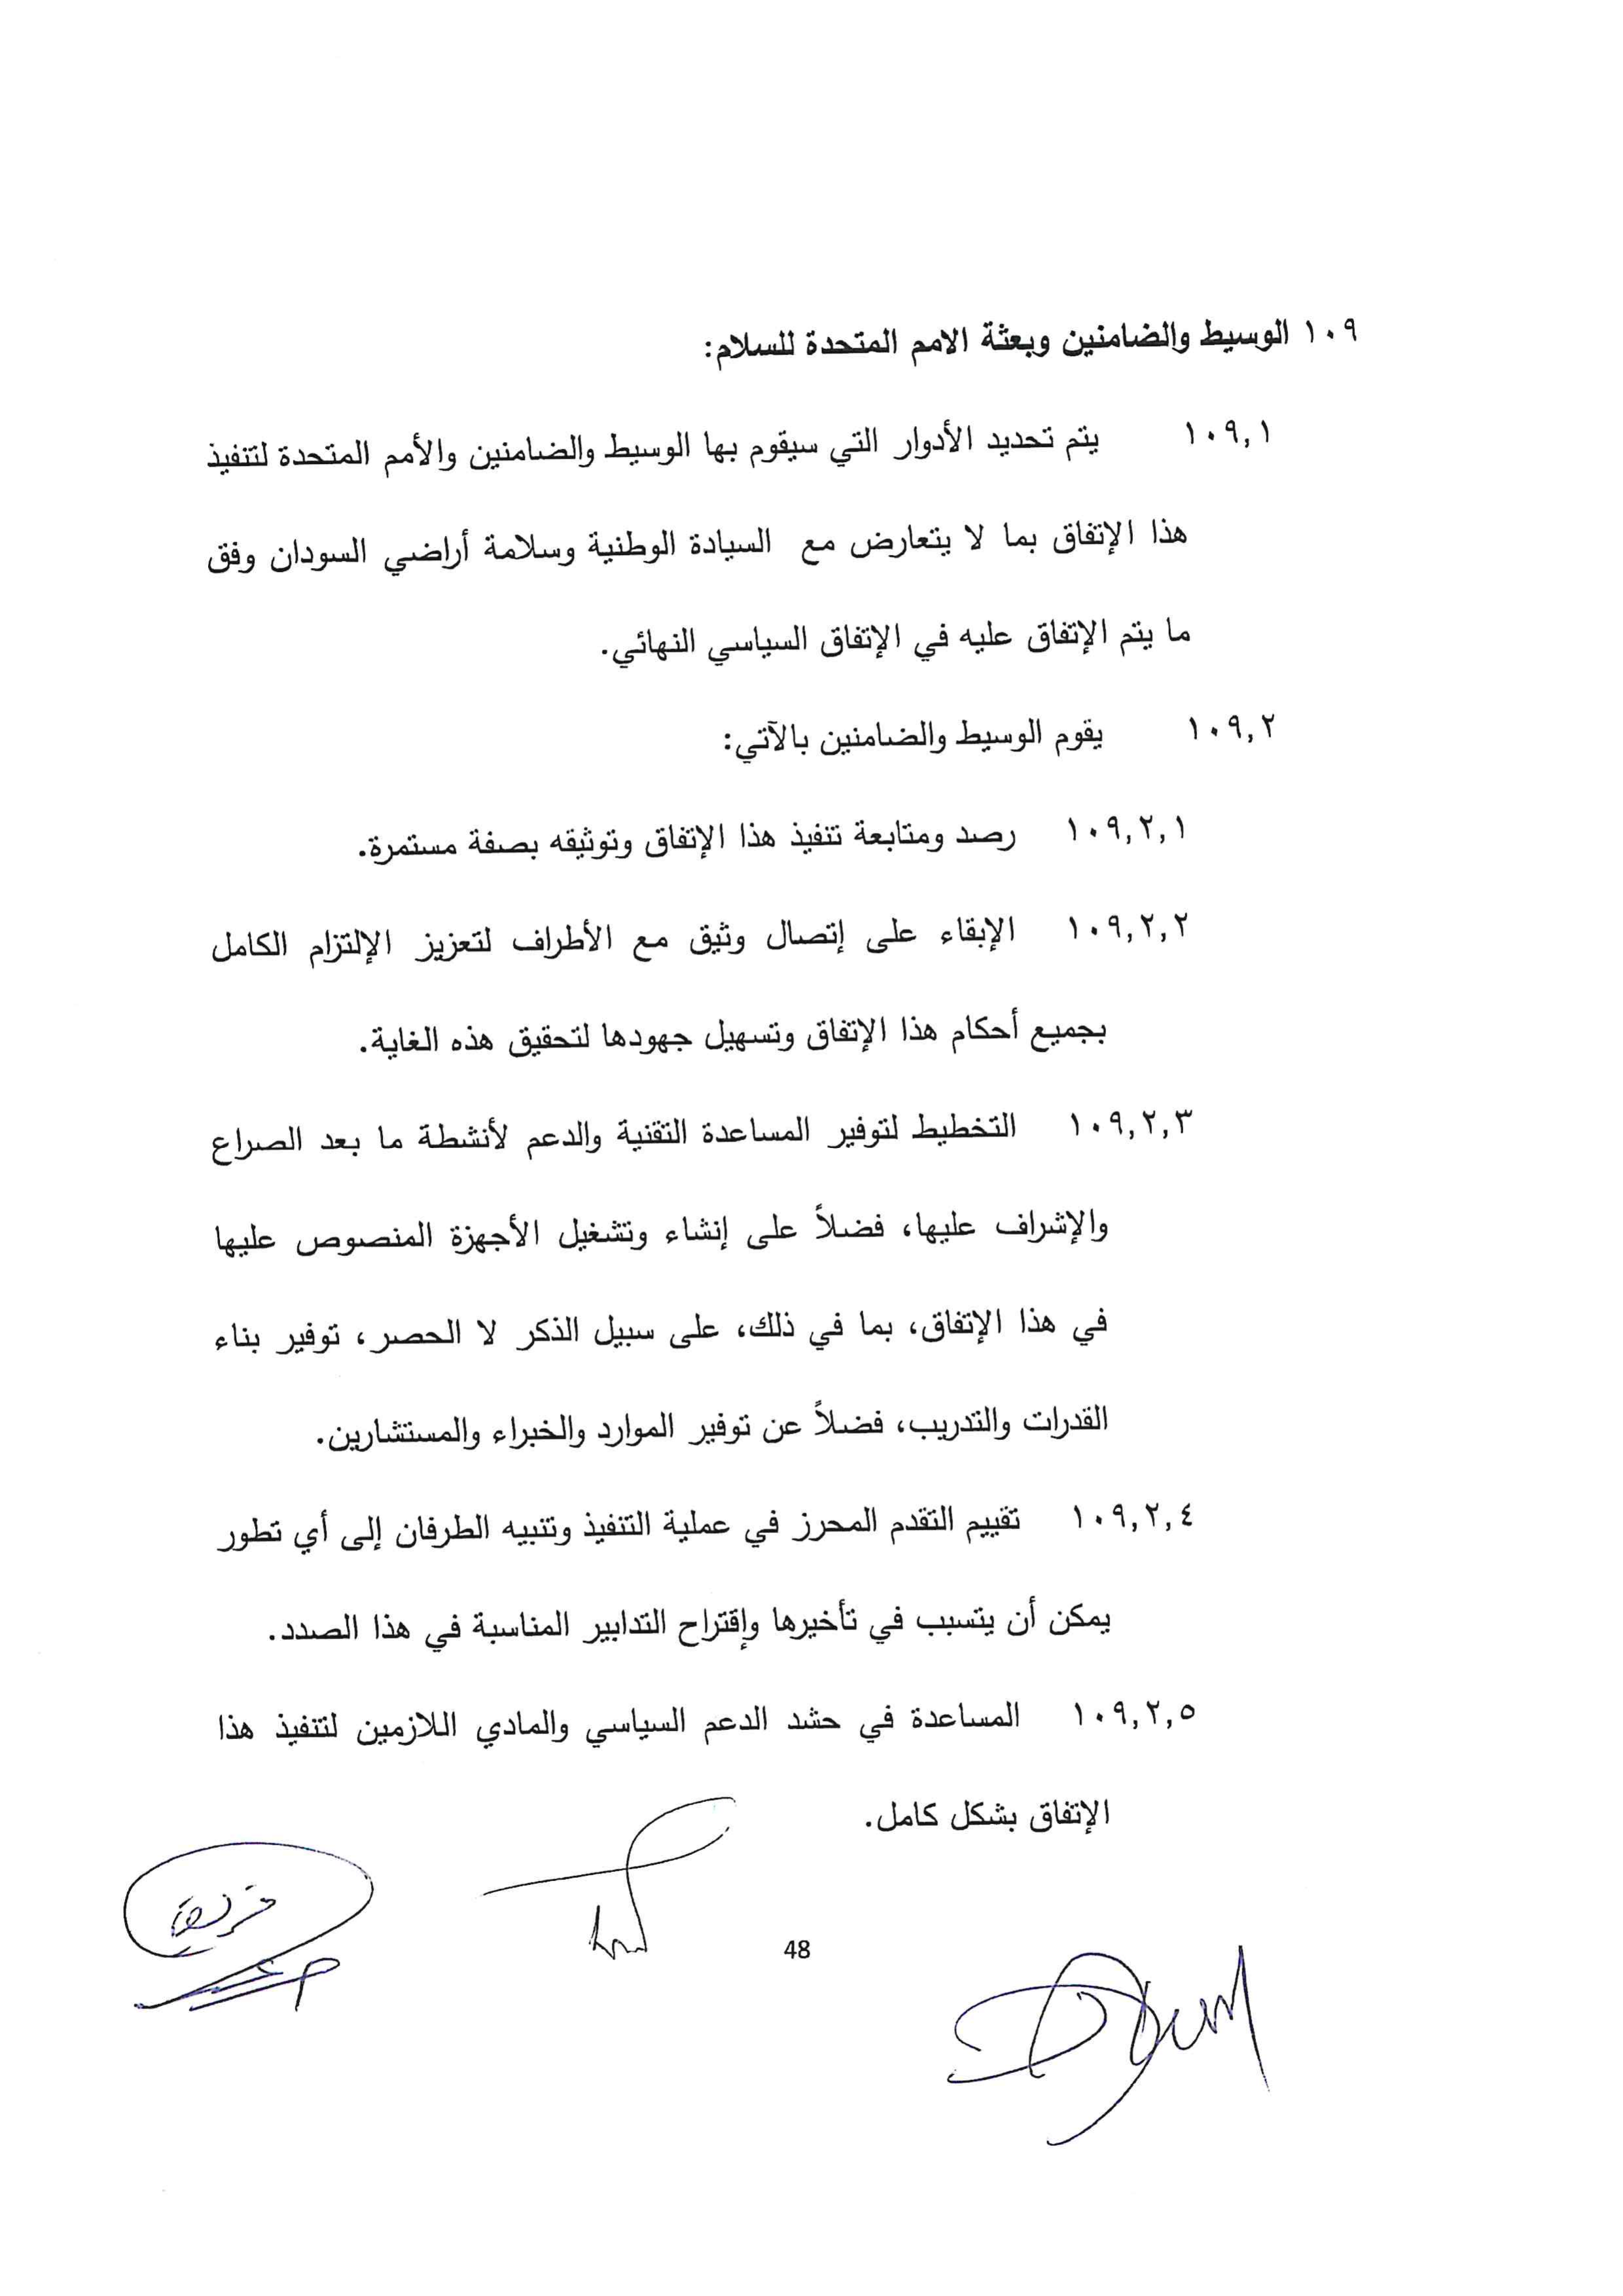 ١٠٩ الوسيط والضامنين وبعثة الامم المتحدة للسلام:
١٠٩,١ يتم تحديد الأدوار التي سيقوم بها الوسيط والضامنين والأمم المتحدة لتنفيذ
هذا الإتفاق بما لا يتعارض مع السيادة الوطنية وسلامة أراضي السودان وفق
ما يتم الإتفاق عليه في الإتفاق السياسي النهائي.
١٠٩,٢ يقوم الوسيط والضامنين بالآتي:
١٠٩,٢,١ رصد ومتابعة تنفيذ هذا الإتفاق وتوثيقه بصفة مستمرة.
١٠٩,٢,٢ الإبقاء على إتصال وثيق مع الأطراف لتعزيز الإلتزام الكامل
بجميع أحكام هذا الإتفاق وتسهيل جهودها لتحقيق هذه الغاية.
١٠٩,٢,٣ التخطيط لتوفير المساعدة التقنية والدعم لأنشطة ما بعد الصراع
والإشراف عليها، فضلاً على إنشاء وتشغيل الأجهزة المنصوص عليها
في هذا الإتفاق، بما في ذلك، على سبيل الذكر لا الحصر، توفير بناء
القدرات والتدريب، فضلاً عن توفير الموارد والخبراء والمستشارين.
١٠٩,٢,٤ تقييم التقدم المحرز في عملية التنفيذ وتنبيه الطرفان إلى أي تطور
يمكن أن يتسبب في تأخيرها وإقتراح التدابير المناسبة في هذا الصدد.
١٠٩,٢,٥ المساعدة في حشد الدعم السياسي والمادي اللازمين لتنفيذ هذا
الإتفاق بشكل كامل.
48